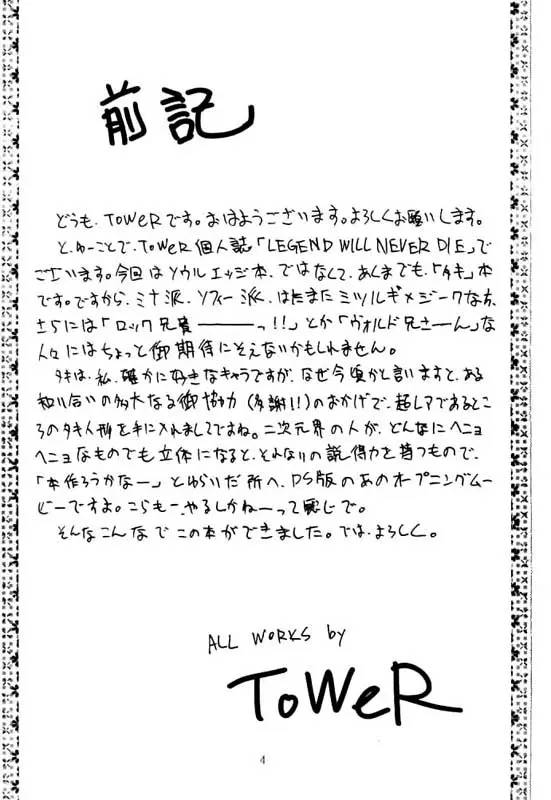 前記
どうも、ToWeRです。おはようございます。よろしくお願いします。
と、ゆーことで、ToWeR個人誌「LEGEND WILL NEVER DIE」で
ございます。今回はソウルエッジ本、ではなくて、あくまでも、「タキ」本
です。ですから、ミナ派、ソフィー派、はたまたミツルギ×ジークなお
さらには「ロック兄貴————っ!!」とか「ヴォルド兄さーん」な
人々にはちょっと御期待にそえないかもしれません。
タキは、私、確かに好きなキャラですが、なぜ今頃かと言いますと、ある
知り合いの多大なる御協力(多謝!!)のおかげで、超レアであるところ
のタキ人形を手に入れましてですね。二次元界の人が、どんなにヘニョ
ヘニョなものでも立体になると、それなりの説得力を持つもので、
「本作ろうかなー」とゆらいだ所へ、PS版のあのオープニングムー
ビーですよ。こらもー、やるしかねーって感じで。
そんなこんなでこの本ができました。では、よろしく。
ALL WORKS by
ToWeR
4